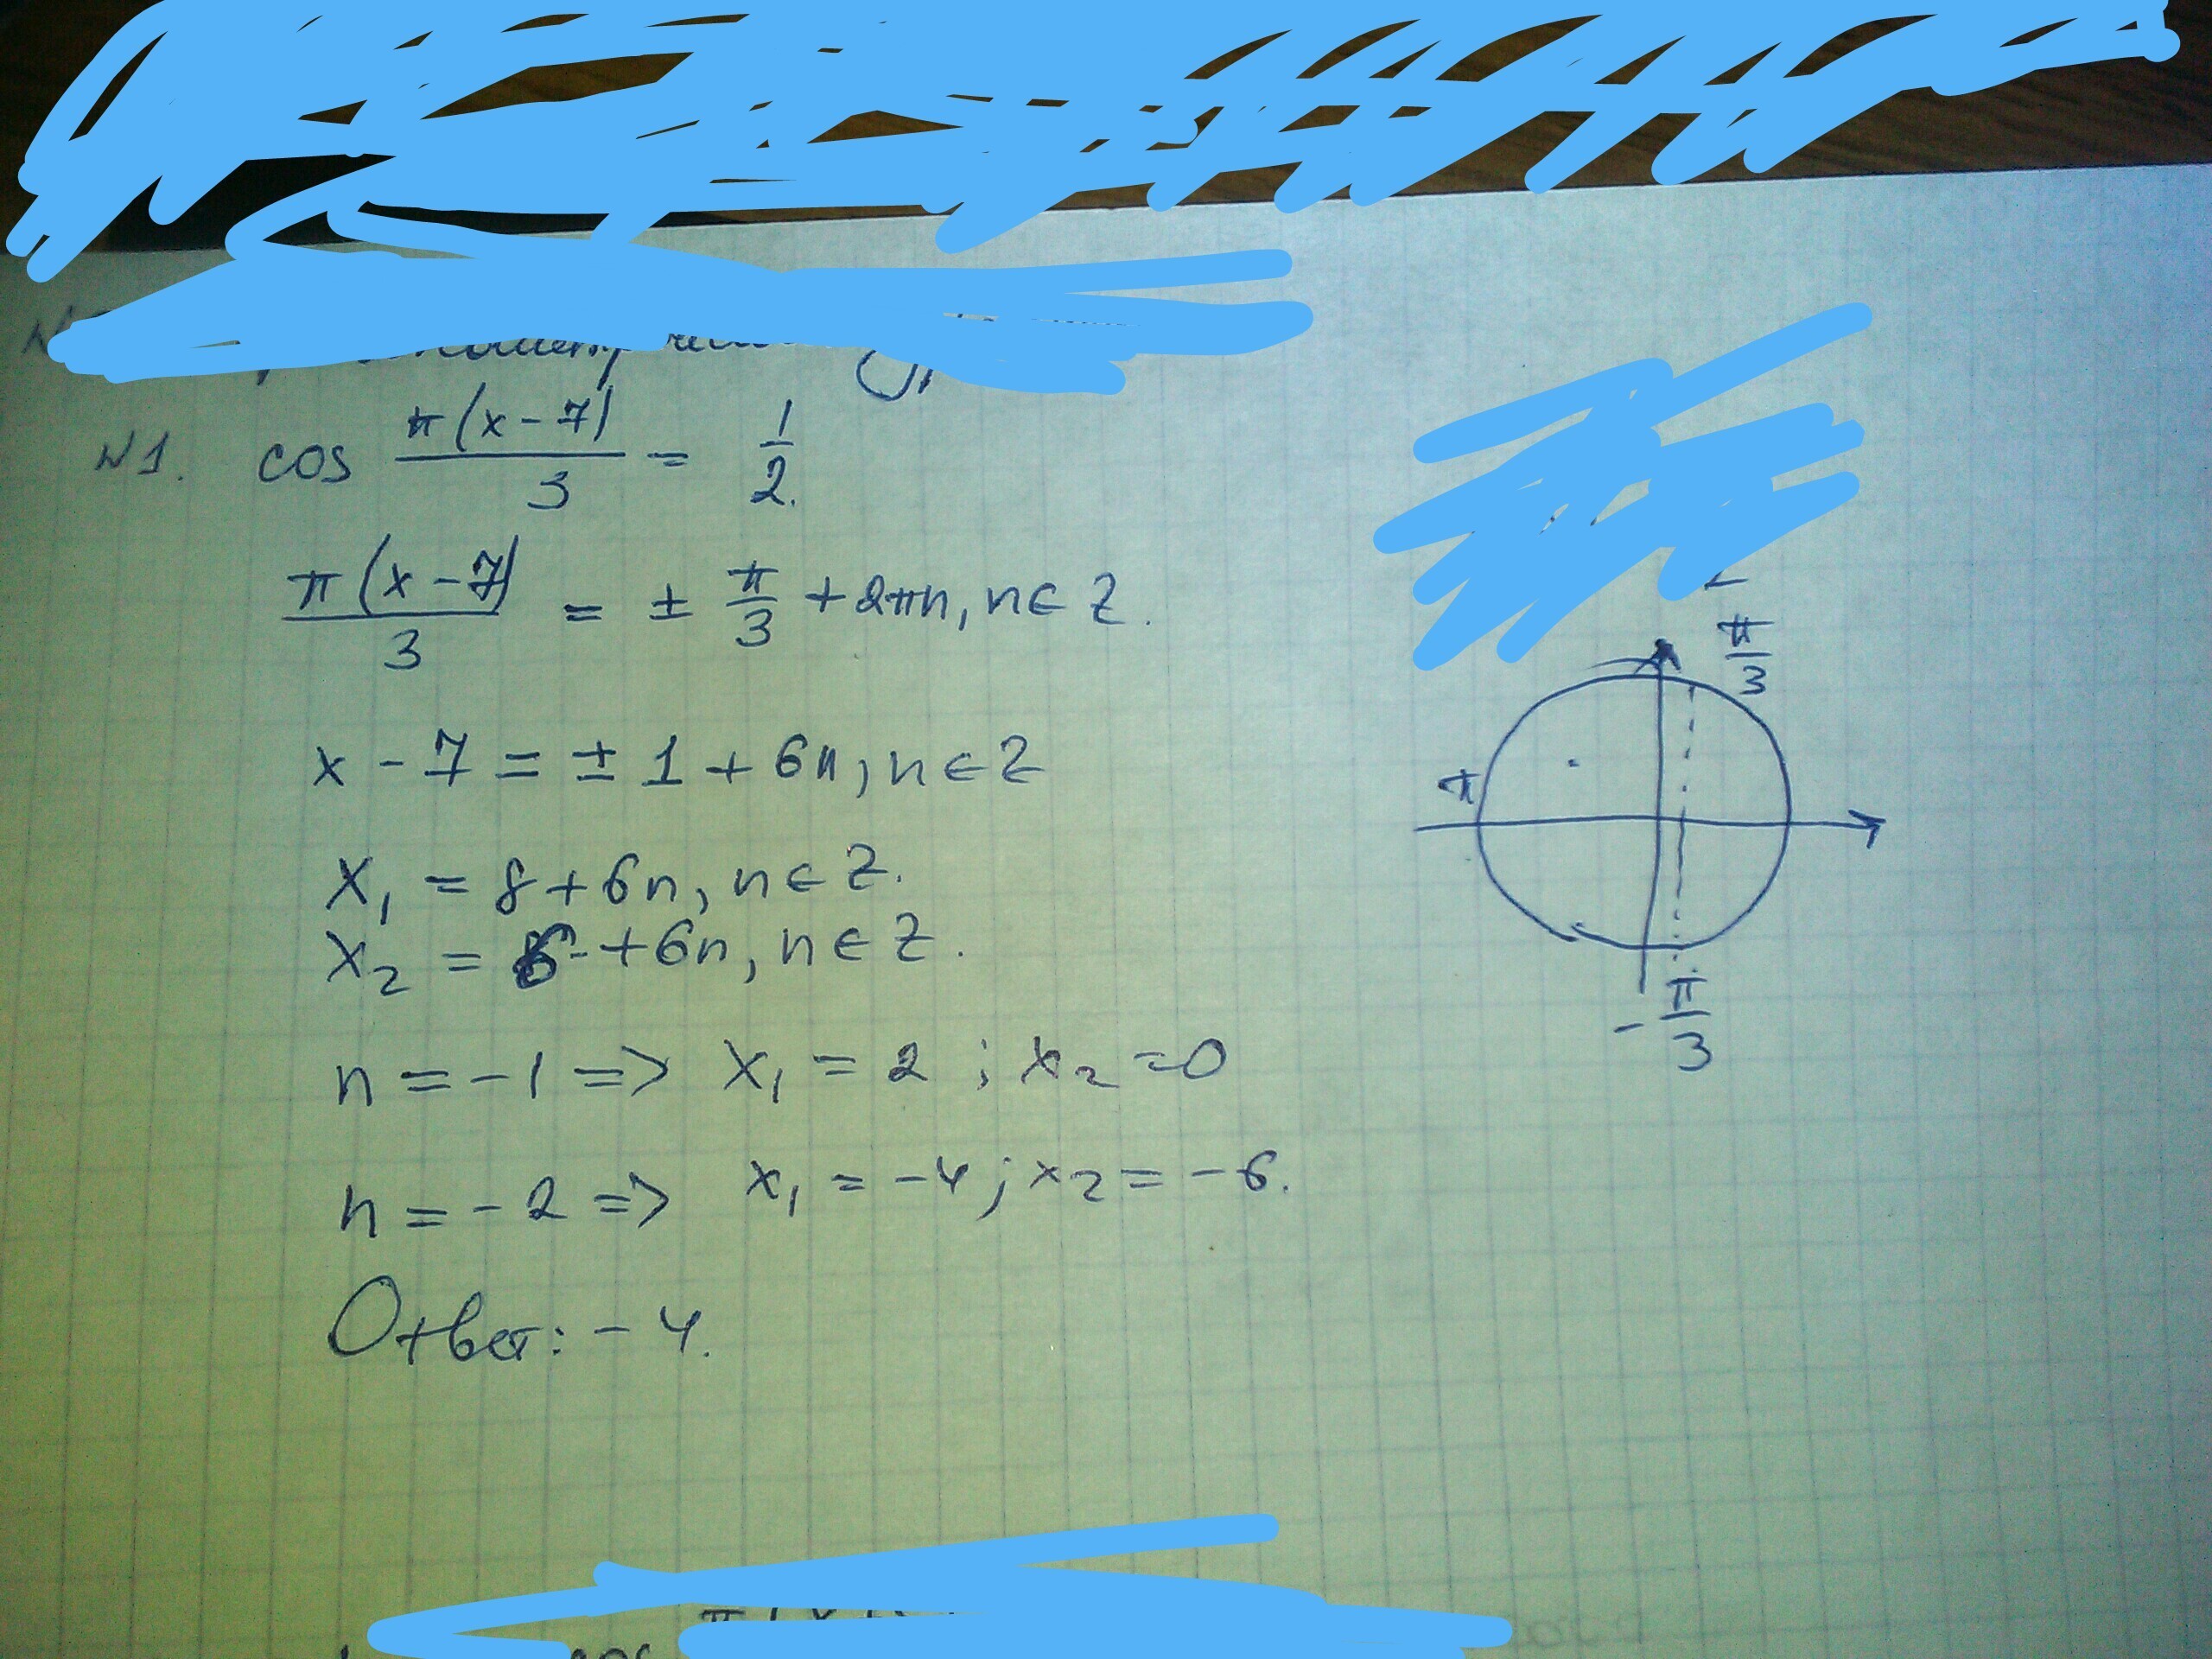 N1. cos π(x-7)/3 = 1/2.
π(x-7)/3 = ± π/3 + 2πn, n∈Z.
x - 7 = ± 1 + 6n, n∈Z
x₁ = 8 + 6n, n∈Z.
x₂ = 6 + 6n, n∈Z.
n = -1 => x₁ = 2 ; x₂ = 0
n = -2 => x₁ = -4 ; x₂ = -6.
Ответ: -4.
π/3
π
-π/3